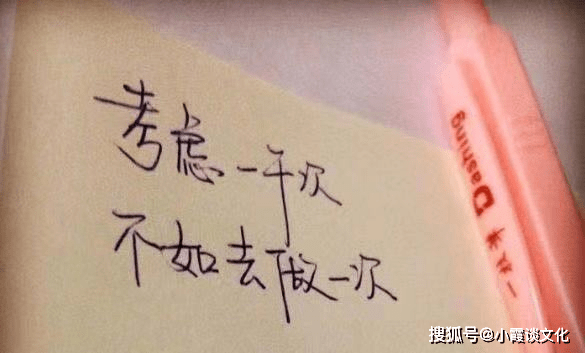 考虑一千次
不如去做一次
Dashing
搜狐号@小霞谈文化